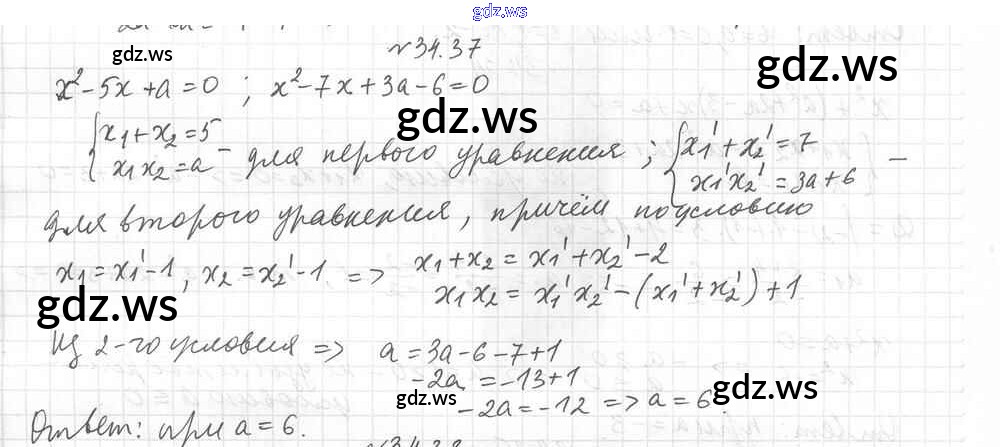 gdz.ws
№34.37
gdz.ws
gdz.ws
x²-5x+a=0 ; x²-7x+3a-6=0
gdz.ws
{x₁+x₂=5
x₁x₂=a - для первого уравнения; {x₁'+x₂'=7
x₁'x₂'=3a+6 —
для второго уравнения, причём по условию
x₁=x₁'-1, x₂=x₂'-1 => x₁+x₂=x₁'+x₂'-2
x₁x₂=x₁'x₂'-(x₁'+x₂')+1
gdz.ws
Из 2-го условия => a=3a-6-7+1
-2a=-13+1
gdz.ws
gdz.ws
-2a=-12 => a=6
Ответ: при a=6.